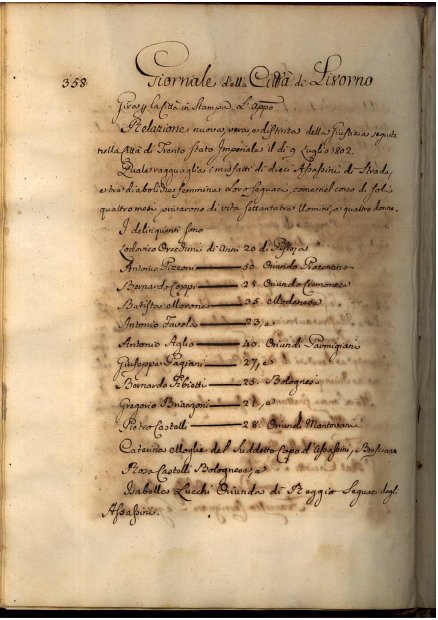 358 Giornale della Città di Livorno
Gira p la Città in Stampa L' appo
Relazione nuova, vera, e distinta della Giustizia seguita
nella Città di Trento Stato Imperiale il dì 9 Luglio 1802.
Quale ragguaglia i misfatti di dieci Assassini di Strada,
e tre diaboliche femmine loro seguaci, come nel corso di soli
quattro mesi privarono di vita settantatre Uomini, e quattro donne.
I delinquenti sono
Lodovico Orecchini di Anni 20 di Pistoja
Antonio Pezzoni 50. Oriundo Piacentino
Bernardo Coppi 21. Oriundo Cremonese
Batista Morone 35. Modenese
Antonio Favola 23, e
Antonio Aglio 40. Oriundi Parmigiani
Giuseppe Pagiani 27, e
Bernardo Abiotti 25. Bolognesi
Gregorio Brianzoni 21, e
Pietro Castelli 28. Oriundi Mantovani
Caterina Moglie del Suddetto Capo d'Assassini, Bresciana
Rosa Castelli Bolognese, e
Isabella Lucchi Oriunda di Reggio Seguaci degl.
Assassini.